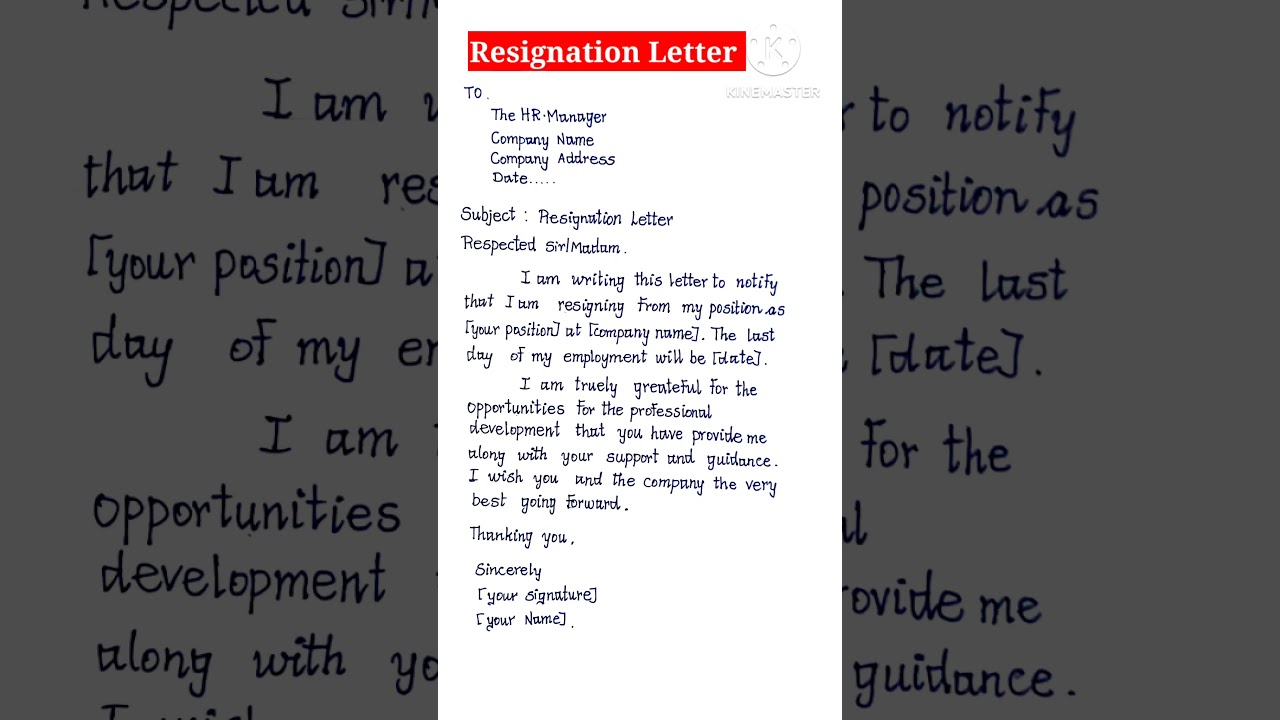 Resignation Letter
KINEMASTER
TO.
The HR.Manager
Company Name
Company Address
Date.....
Subject : Resignation Letter
Respected Sir/Madam.
I am writing this letter to notify
that I am resigning from my position as
[your position] at [company name]. The last
day of my employment will be [date].
I am truely greateful for the
opportunities for the professional
development that you have provide me
along with your support and guidance.
I wish you and the company the very
best going forward.
Thanking you,
Sincerely
[your signature]
[your Name].